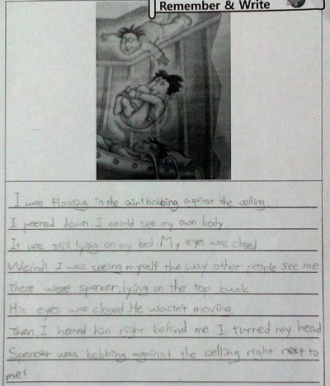 Remember & Write
I was floating in the air! bobbing against the ceiling.
I peered down. I could see my own body
It was still lying on my bed. My eyes was closed
Weird! I was seeing myself the way other people see me
There were spencer, lying on the top bunk
His eyes was closed. He wasn't moving
Then, I heard him right behind me. I turned my head
Spencer was bobbing against the ceiling right next to
me!